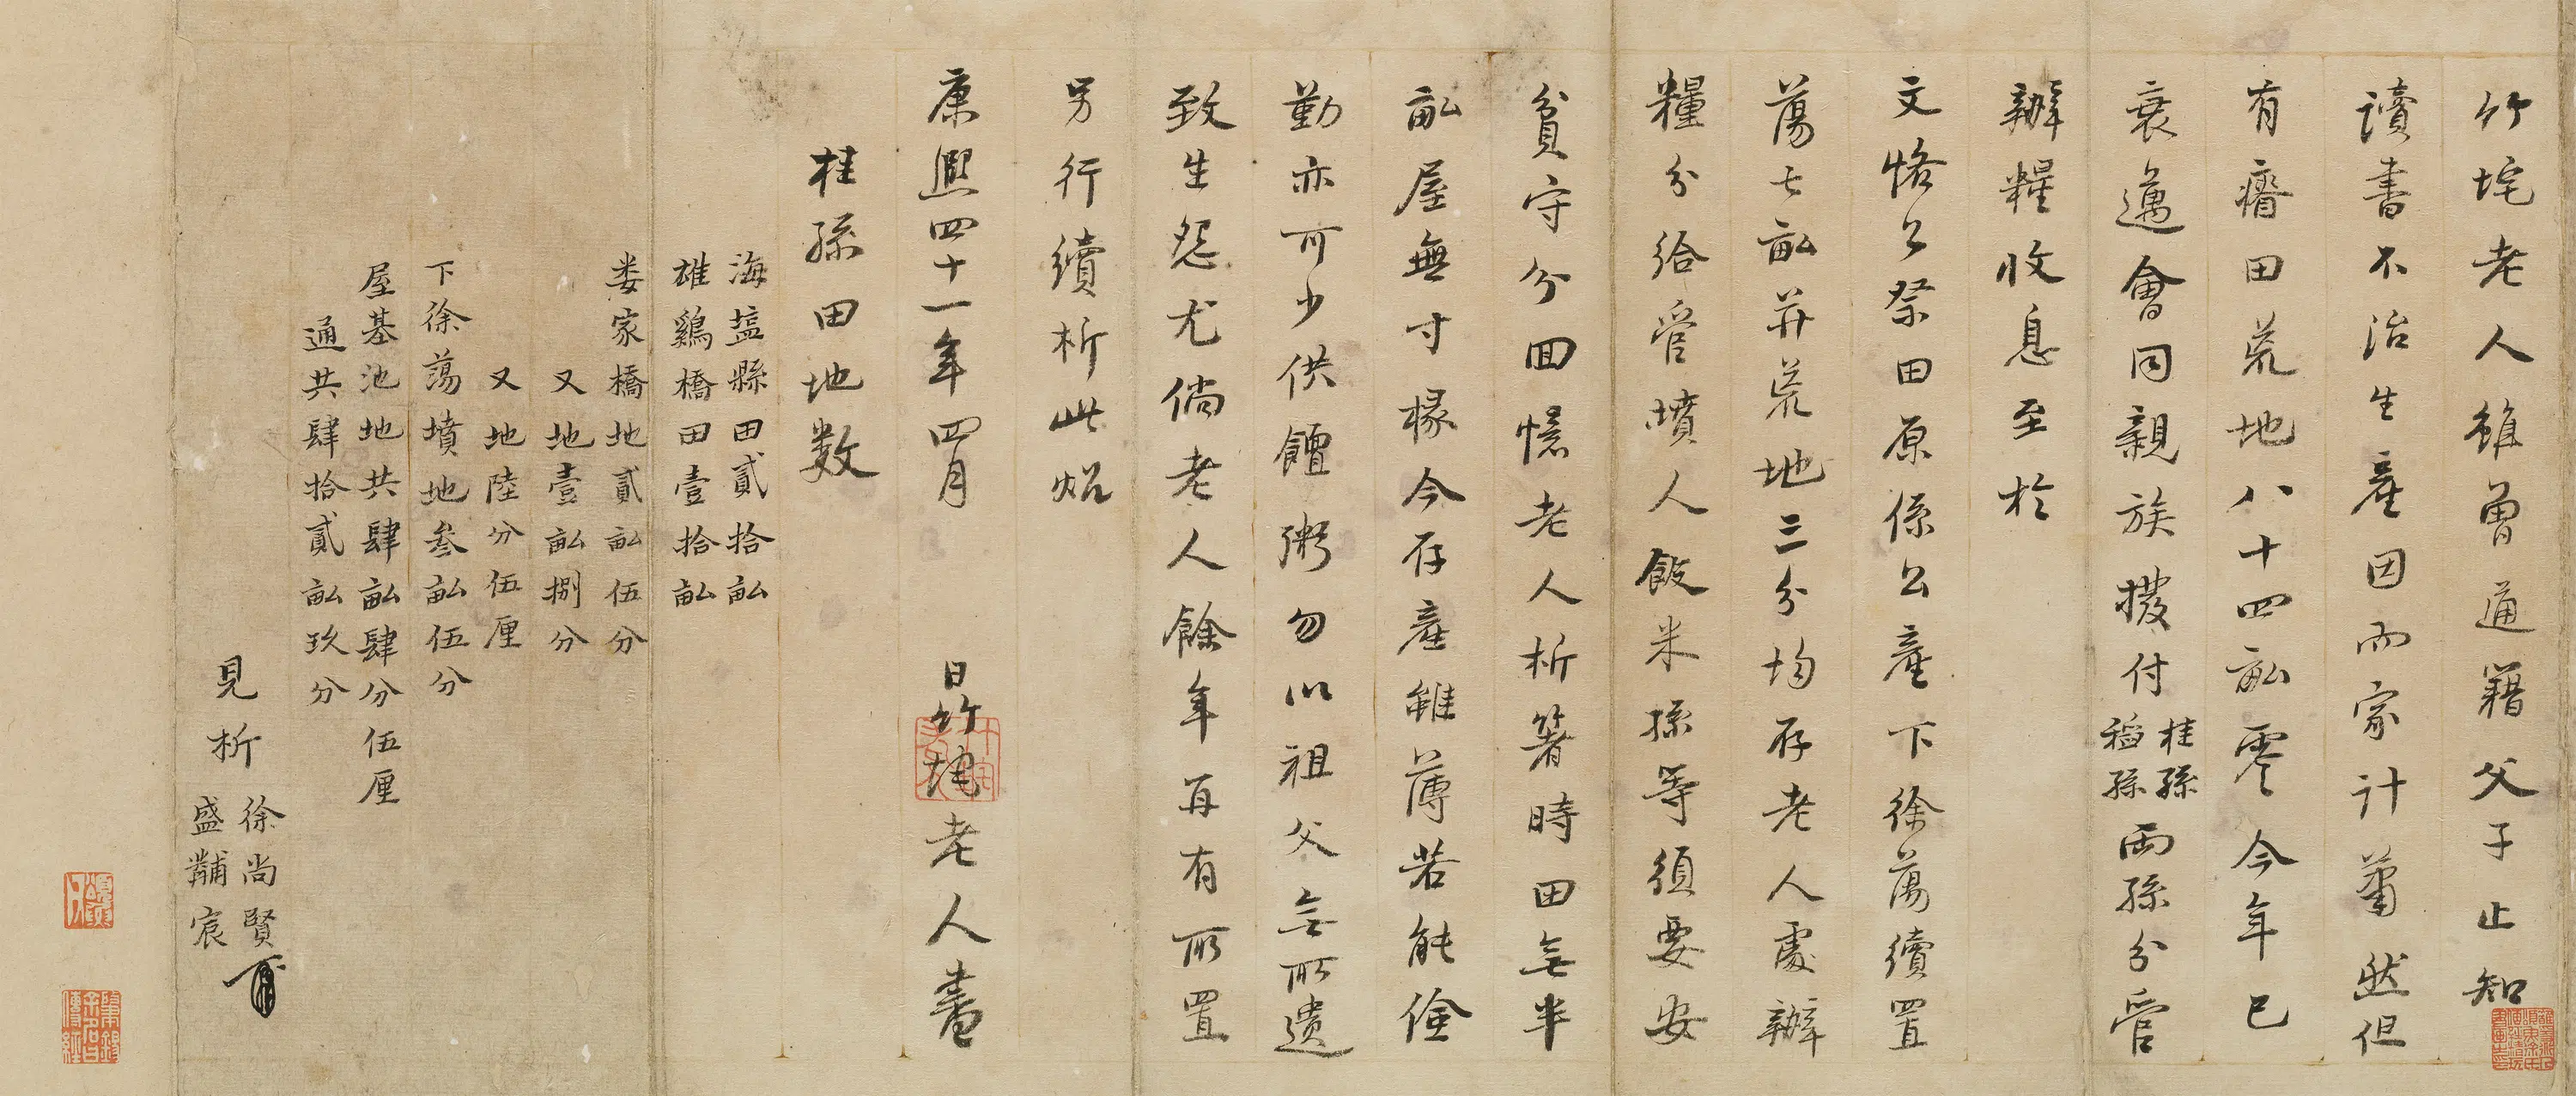 竹垞老人雖曾通籍父子止知
讀書不治生產因而家計蕭然但
有瘠田荒地八十四畝零今年已
衰邁會同親族撥付桂孫稻孫兩孫分管
辦糧收息至於
文恪公祭田原係公產下徐蕩續置
蕩七畝并荒地三分均存老人處辦
糧分給管墳人飯米孫等須要安
貧守分回憶老人析箸時田無半
畝屋無寸椽今存產雖薄若能儉
勤亦可少供饘粥勿以祖父無所遺
致生怨尤倘老人餘年再有所置
另行續析此炤
康熙四十一年四月 日竹垞老人書
桂孫田地數
海塩縣田貳拾畝
雄鷄橋田壹拾畝
婁家橋地貳畝伍分
又地壹畝捌分
又地陸分伍厘
下徐蕩墳地叁畝伍分
屋基池地共肆畝肆分伍厘
通共肆拾貳畝玖分
見析
徐尚賢
盛黼宸